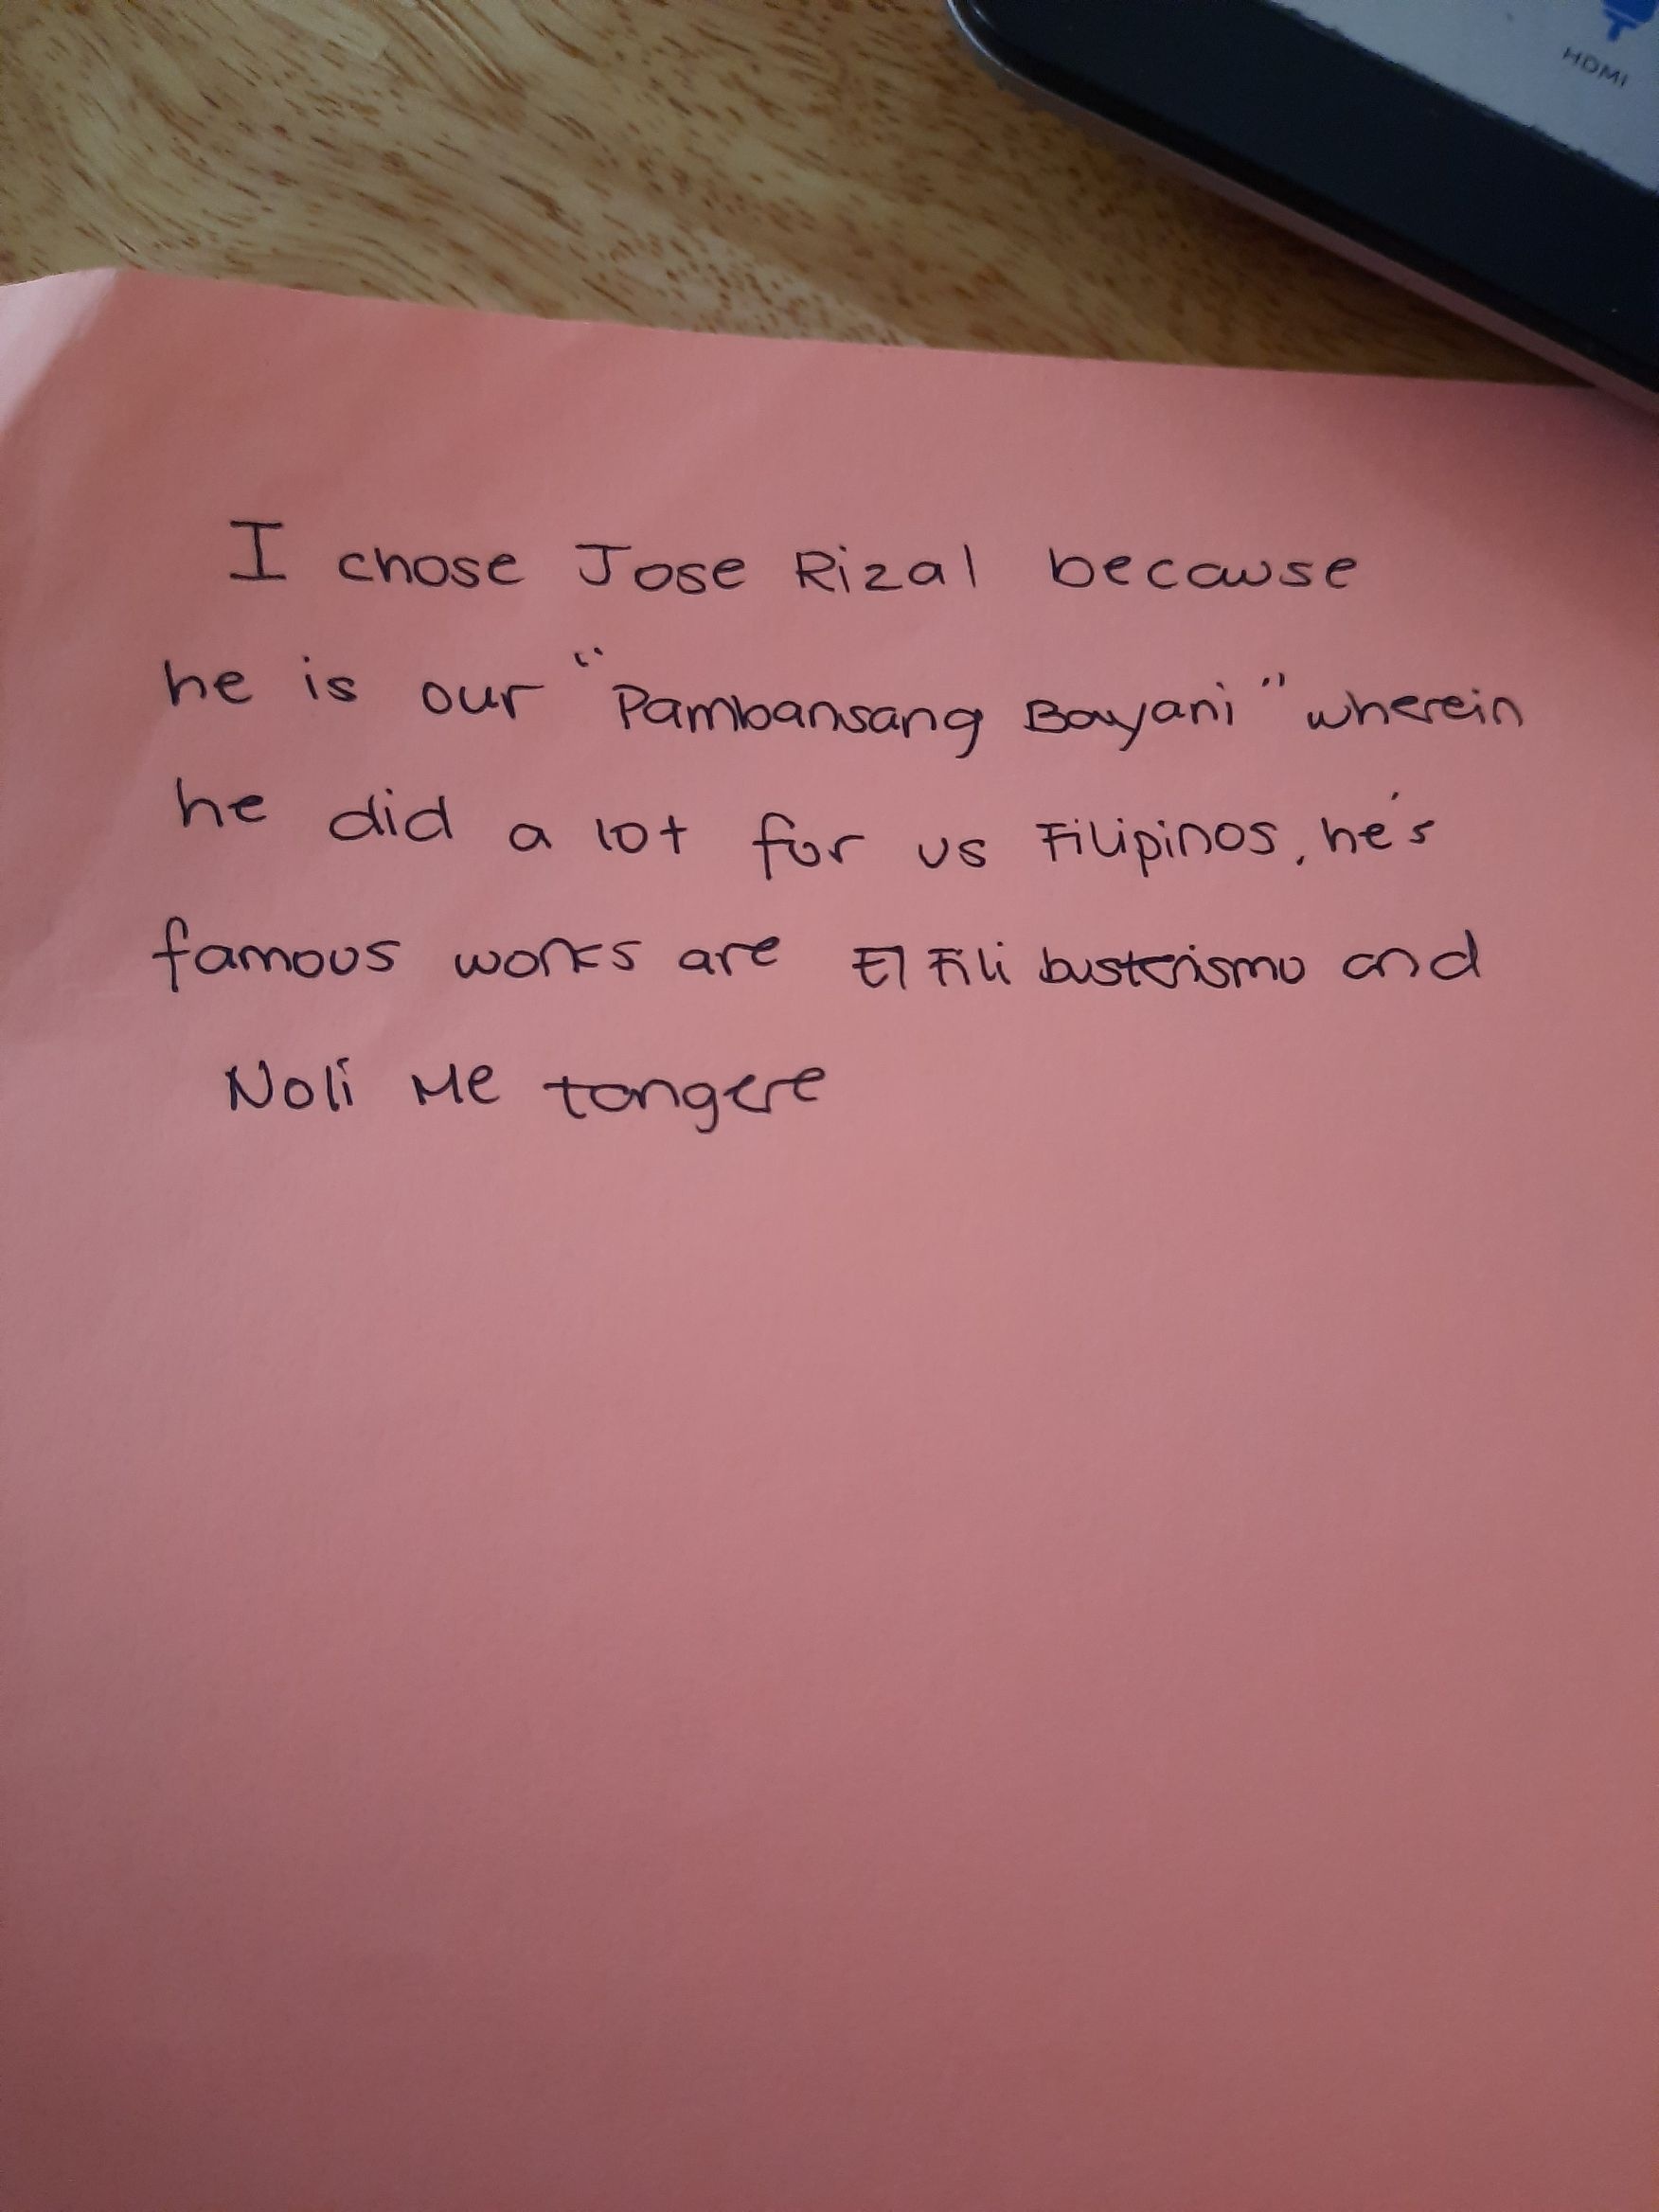 HDMI
I chose Jose Rizal because
he is our "Pambansang Bayani" wherein
he did a lot for us Filipinos, he's
famous works are El Fili busterismo and
Noli Me tangere